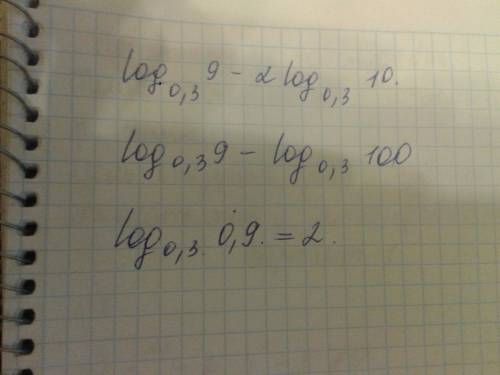 log₀,₃ 9 - 2 log₀,₃ 10.
log₀,₃ 9 - log₀,₃ 100
log₀,₃ 0,9. = 2.